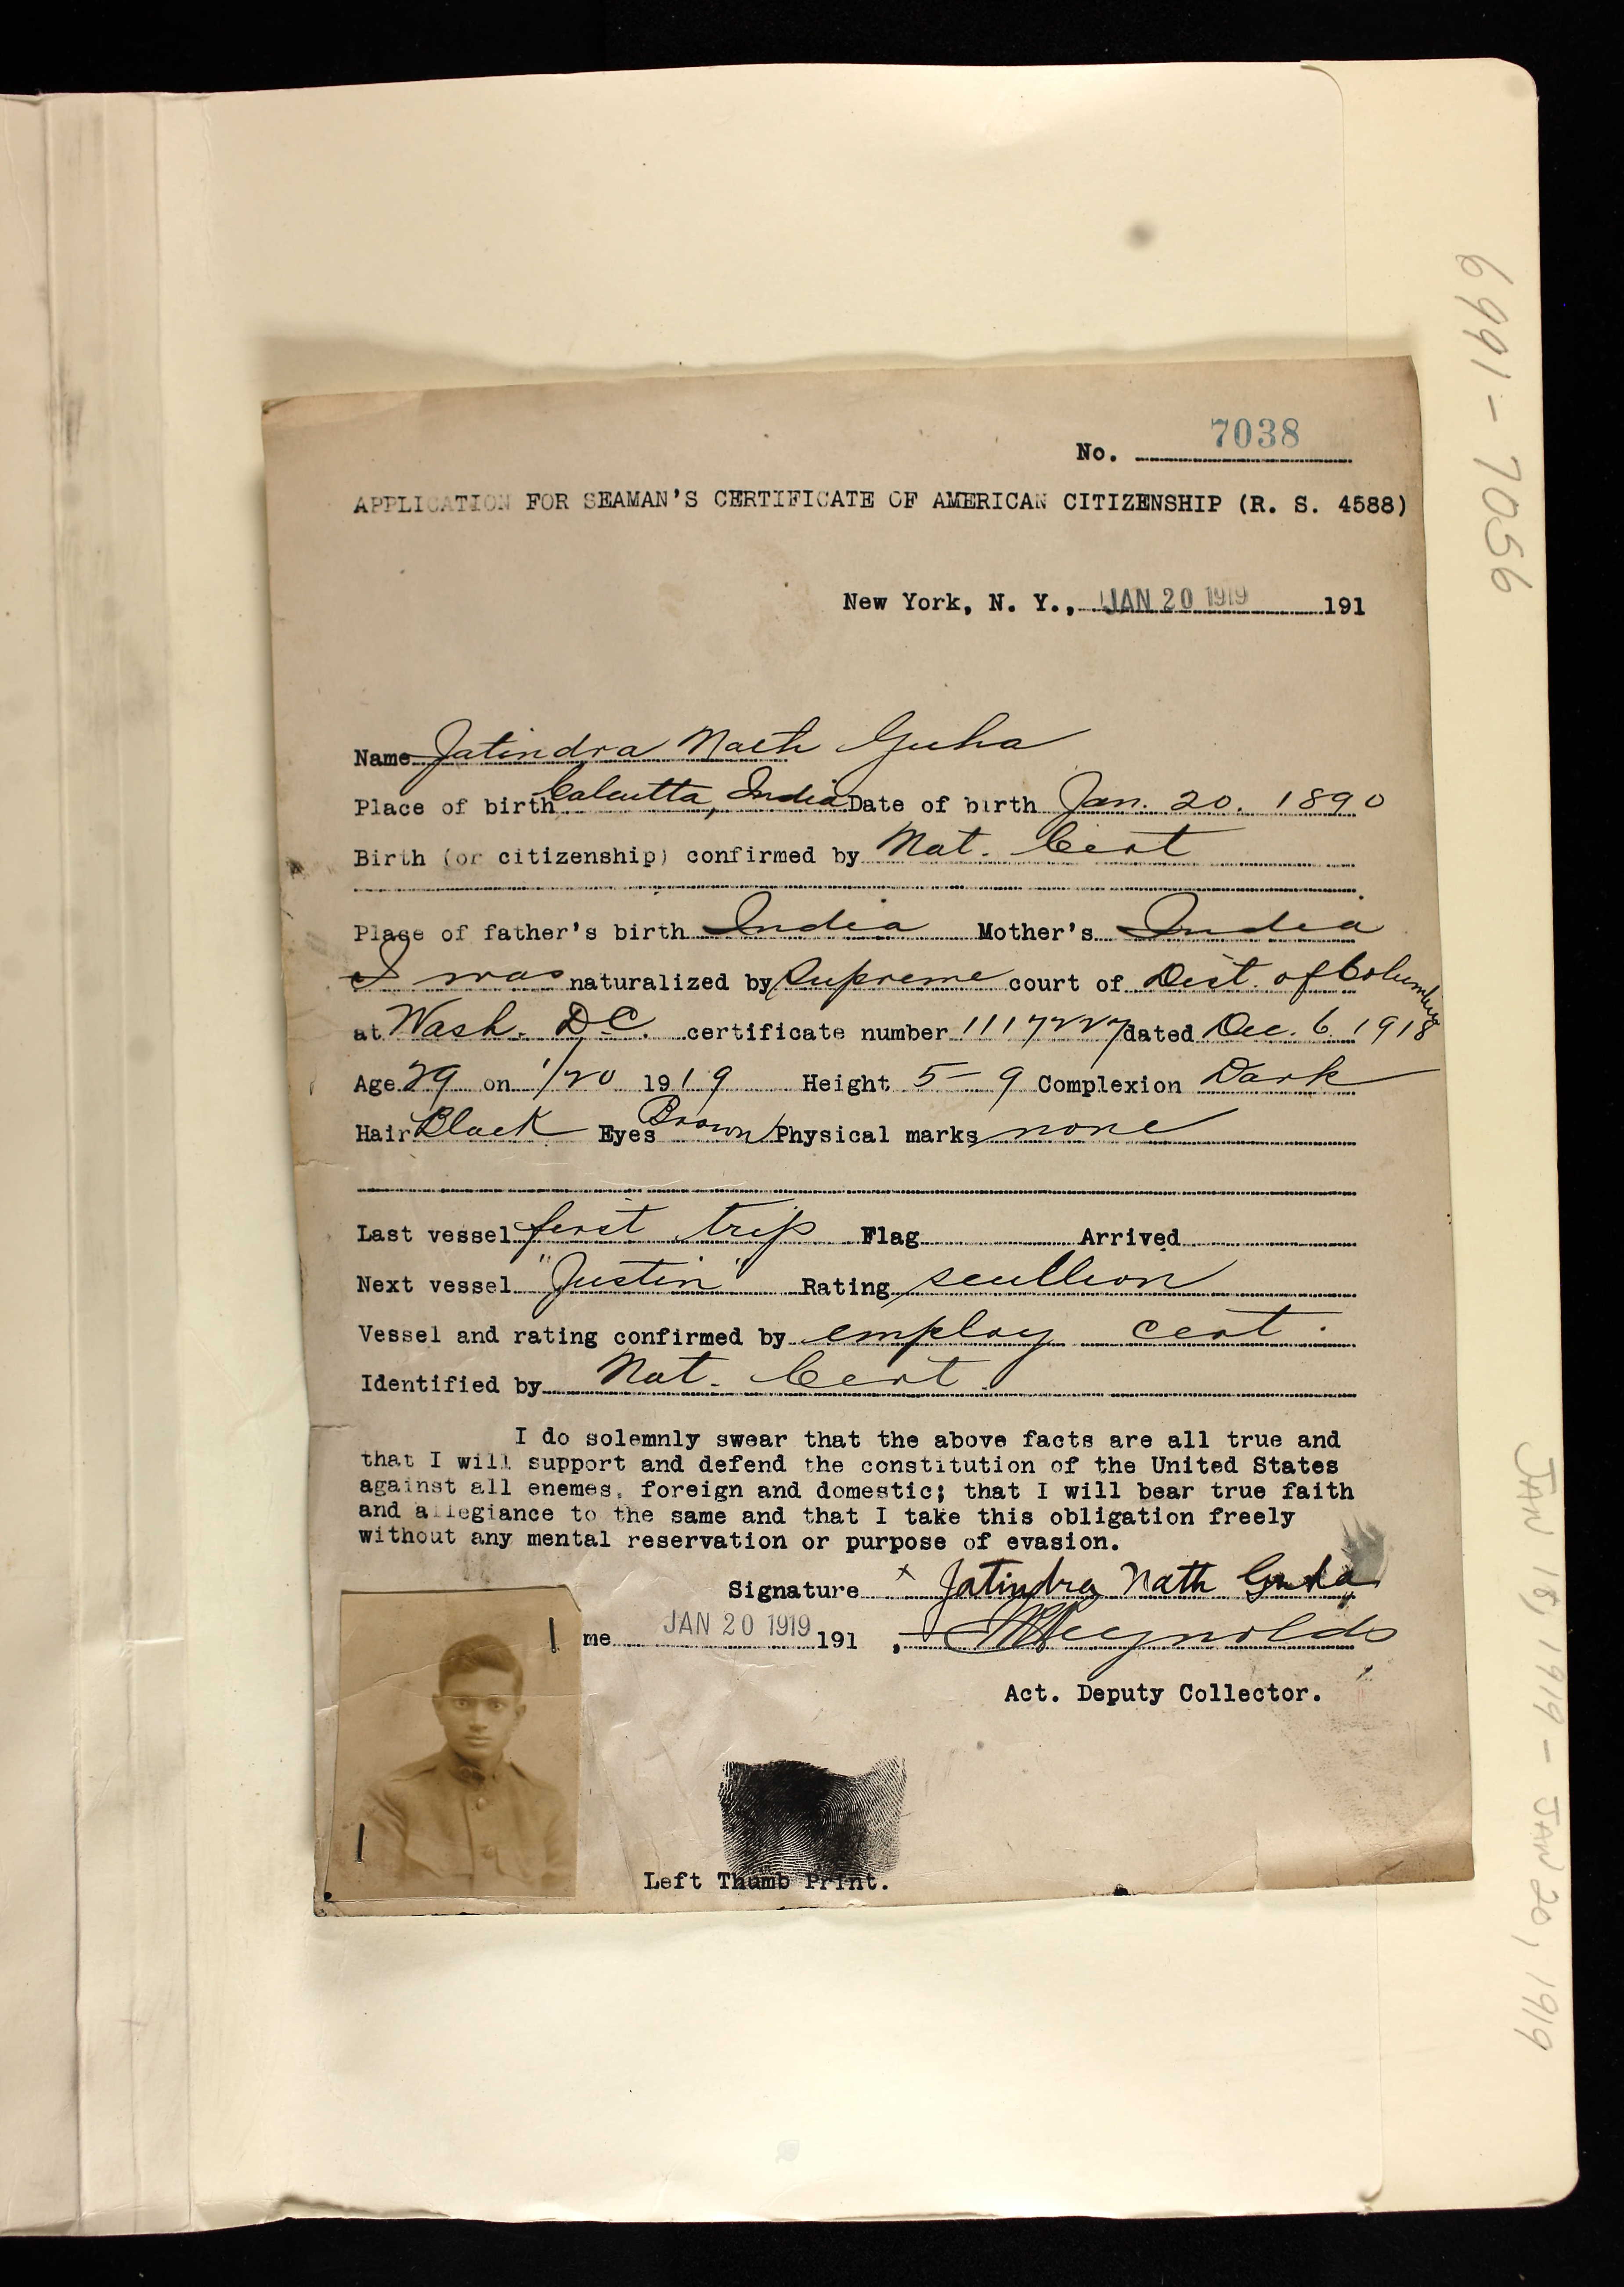 No. 7038
APPLICATION FOR SEAMAN'S CERTIFICATE OF AMERICAN CITIZENSHIP (R. S. 4588)
New York, N. Y., JAN 20 1919 191
Name Jatindra Nath Guha
Place of birth Calcutta, India Date of birth Jan. 20. 1890
Birth (or citizenship) confirmed by Nat. Cert
Place of father's birth India Mother's India
I was naturalized by Supreme court of Dist. of Columbia
at Wash. D.C. certificate number 1117227 dated Dec. 6 1918
Age 29 on 1/20 1919 Height 5-9 Complexion Dark
Hair Black Eyes Brown Physical marks none
Last vessel first trip Flag Arrived
Next vessel "Justin" Rating scullion
Vessel and rating confirmed by employ cert.
Identified by Nat. Cert.
I do solemnly swear that the above facts are all true and
that I will support and defend the constitution of the United States
against all enemes, foreign and domestic; that I will bear true faith
and allegiance to the same and that I take this obligation freely
without any mental reservation or purpose of evasion.
Signature x Jatindra Nath Guha
me JAN 20 1919 191 , Reynolds
Act. Deputy Collector.
Left Thumb Print.
6991 - 7056
JAN 18, 1919 - JAN 20, 1919